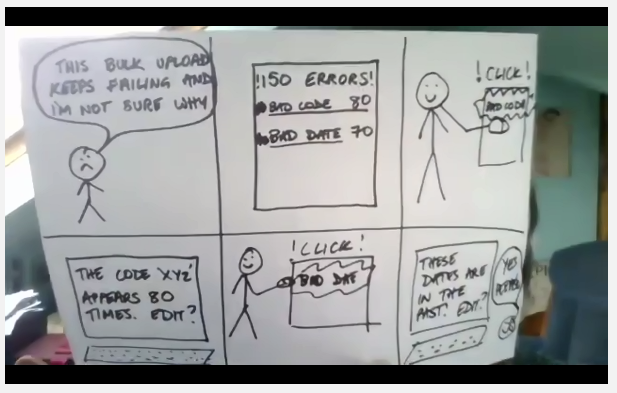 THIS BULK UPLOAD
KEEPS FAILING AND
I'M NOT SURE WHY
!150 ERRORS!
BAD CODE 80
BAD DATE 70
!CLICK!
BAD CODE
THE CODE 'XYZ'
APPEARS 80
TIMES. EDIT?
!CLICK!
BAD DATE
THESE
DATES ARE
IN THE
PAST. EDIT?
YES